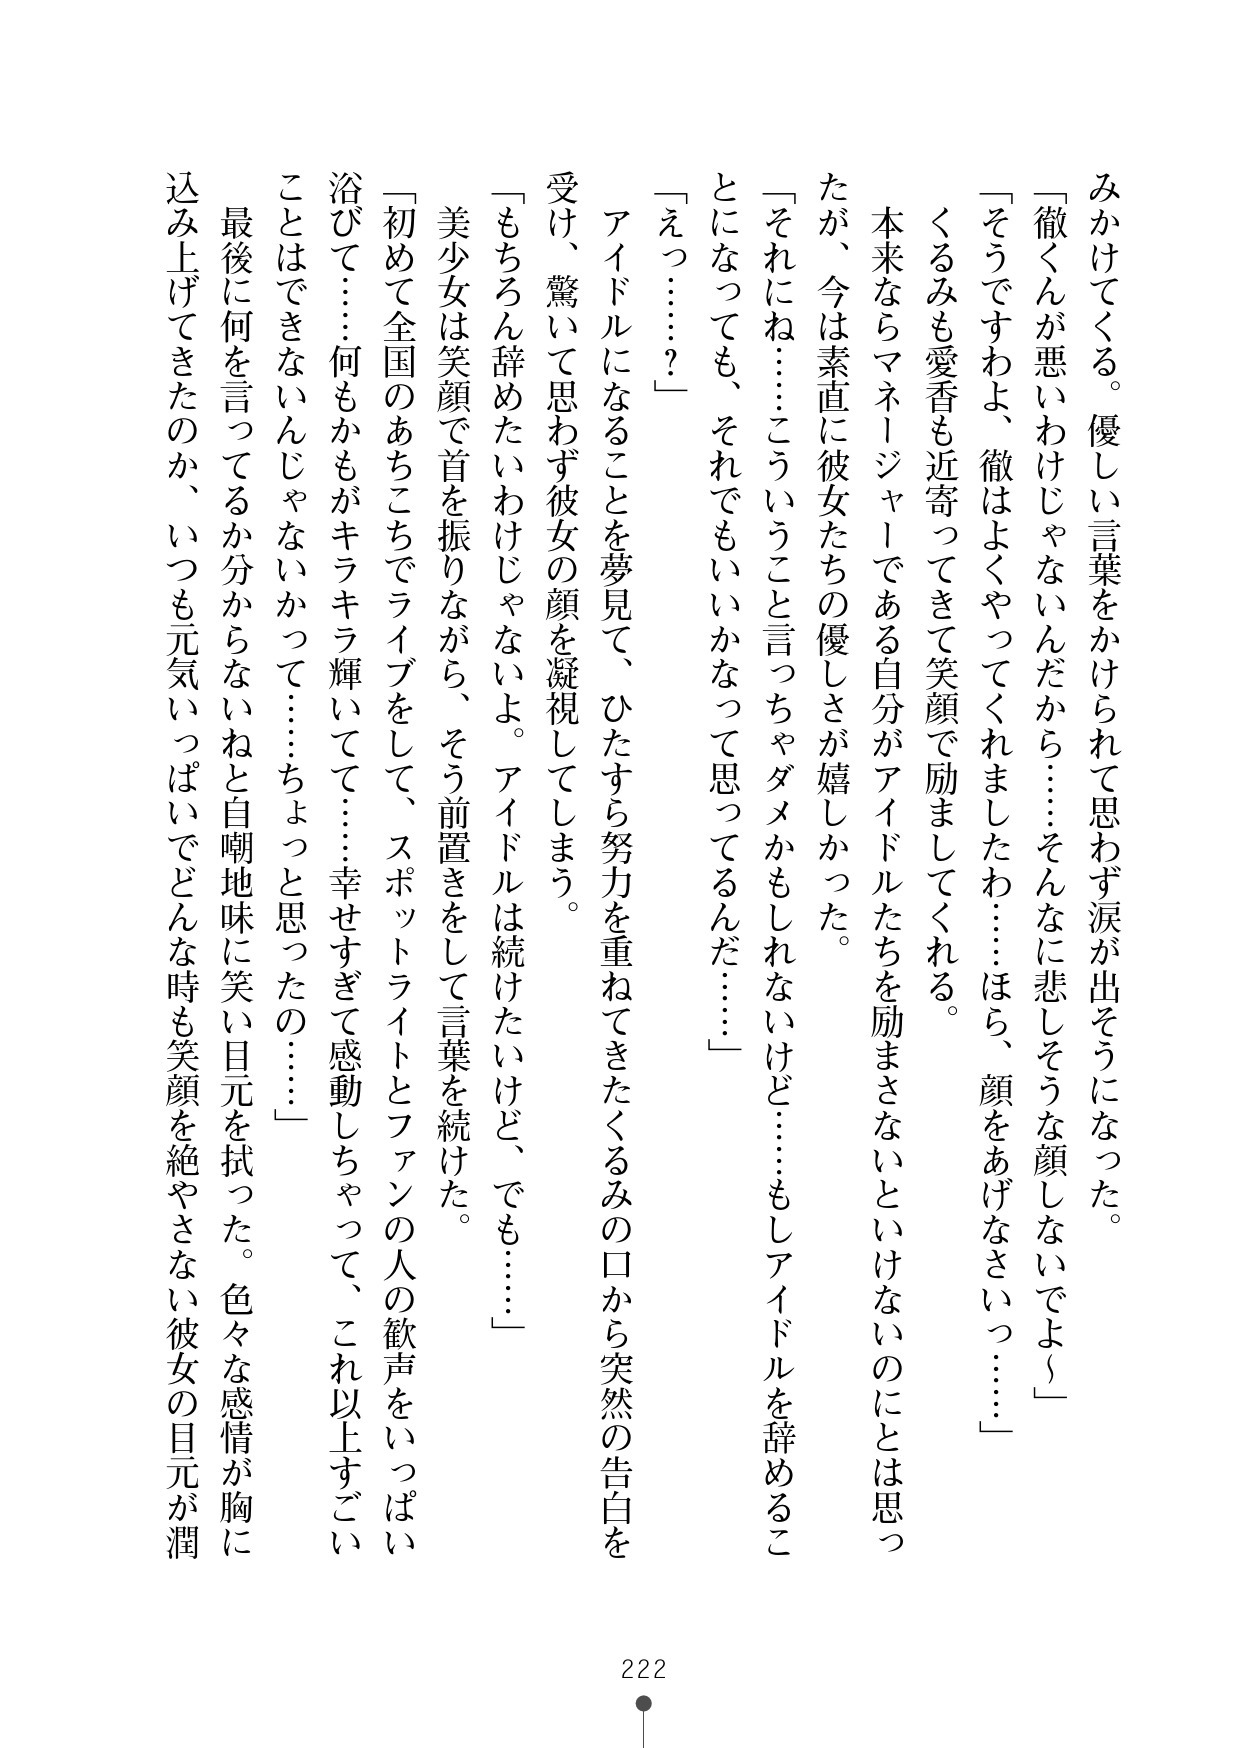 みかけてくる。優しい言葉をかけられて思わず涙が出そうになった。
「徹くんが悪いわけじゃないんだから……そんなに悲しそうな顔しないでよ～」
「そうですわよ、徹はよくやってくれましたわ……ほら、顔をあげなさいっ……」
くるみも愛香も近寄ってきて笑顔で励ましてくれる。
本来ならマネージャーである自分がアイドルたちを励まさないといけないのにとは思っ
たが、今は素直に彼女たちの優しさが嬉しかった。
「それにね……こういうこと言っちゃダメかもしれないけど……もしアイドルを辞めるこ
とになっても、それでもいいかなって思ってるんだ……」
「えっ……？」
アイドルになることを夢見て、ひたすら努力を重ねてきたくるみの口から突然の告白を
受け、驚いて思わず彼女の顔を凝視してしまう。
「もちろん辞めたいわけじゃないよ。アイドルは続けたいけど、でも……」
美少女は笑顔で首を振りながら、そう前置きをして言葉を続けた。
「初めて全国のあちこちでライブをして、スポットライトとファンの人の歓声をいっぱい
浴びて……何もかもがキラキラ輝いてて……幸せすぎて感動しちゃって、これ以上すごい
ことはできないんじゃないかって……ちょっと思ったの……」
最後に何を言ってるか分からないねと自嘲地味に笑い目元を拭った。色々な感情が胸に
込み上げてきたのか、いつも元気いっぱいでどんな時も笑顔を絶やさない彼女の目元が潤
222